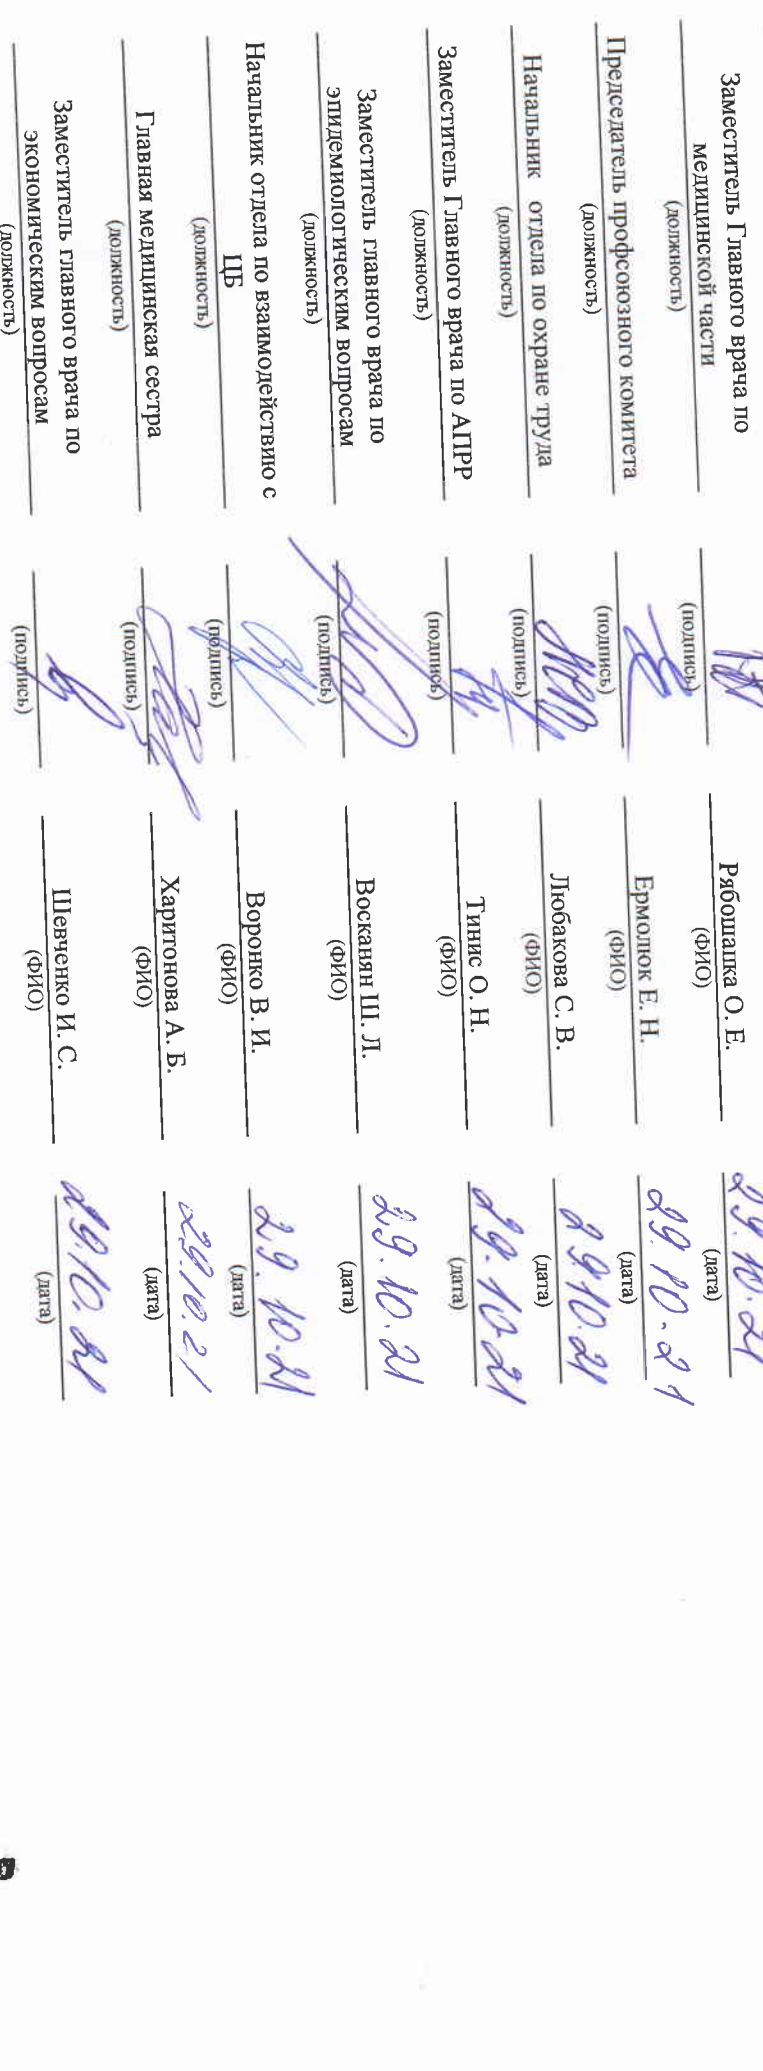 Заместитель Главного врача по
медицинской части Рябошапка О. Е. 29.10.21
(должность) (подпись) (ФИО) (дата)
Председатель профсоюзного комитета Ермолюк Е. Н. 29.10.21
(должность) (подпись) (ФИО) (дата)
Начальник отдела по охране труда Любакова С. В. 29.10.21
(должность) (подпись) (ФИО) (дата)
Заместитель Главного врача по АПРР Тинис О. Н. 29.10.21
(должность) (подпись) (ФИО) (дата)
Заместитель главного врача по
эпидемиологическим вопросам Восканян Ш. Л. 29.10.21
(должность) (подпись) (ФИО) (дата)
Начальник отдела по взаимодействию с
ЦБ Воронко В. И. 29.10.21
(должность) (подпись) (ФИО) (дата)
Главная медицинская сестра Харитонова А. Б. 29.10.21
(должность) (подпись) (ФИО) (дата)
Заместитель главного врача по
экономическим вопросам Шевченко И. С. 29.10.21
(должность) (подпись) (ФИО) (дата)